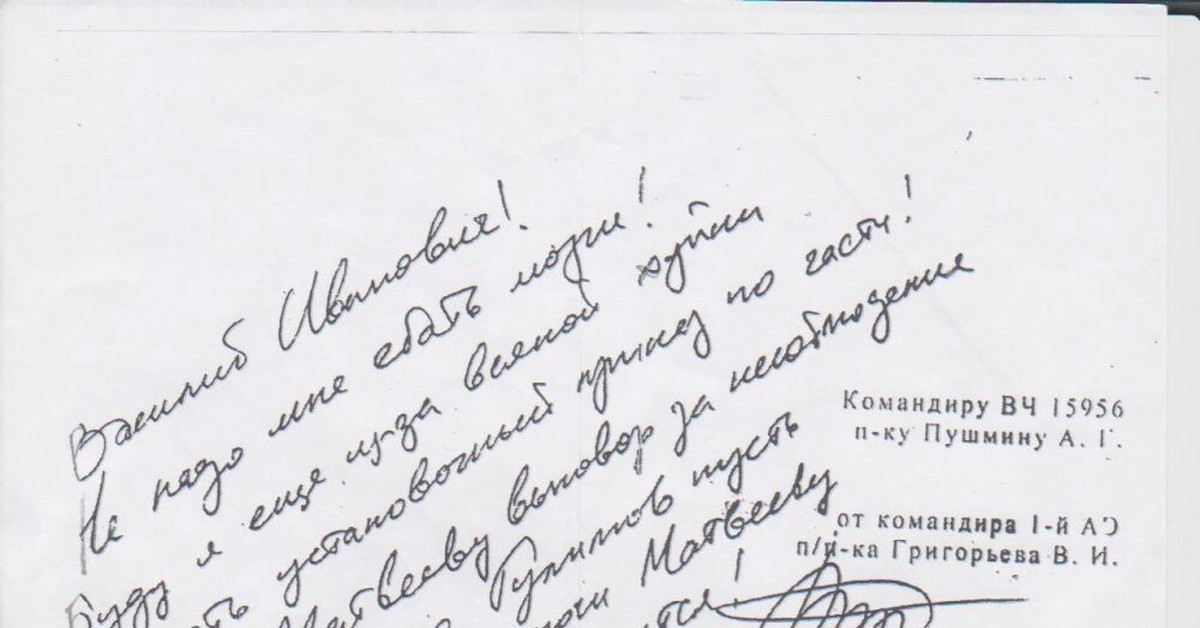 Василий Иванович!
Не надо мне ебать мозги!
Буду я еще из-за всякой хуйни
установочный приказ по части!
Матвееву выговор за несоблюдение
Гулимов пусть
Матвееву
Командиру ВЧ 15956
п-ку Пушмину А. Г.
от командира 1-й АЭ
п/п-ка Григорьева В. И.